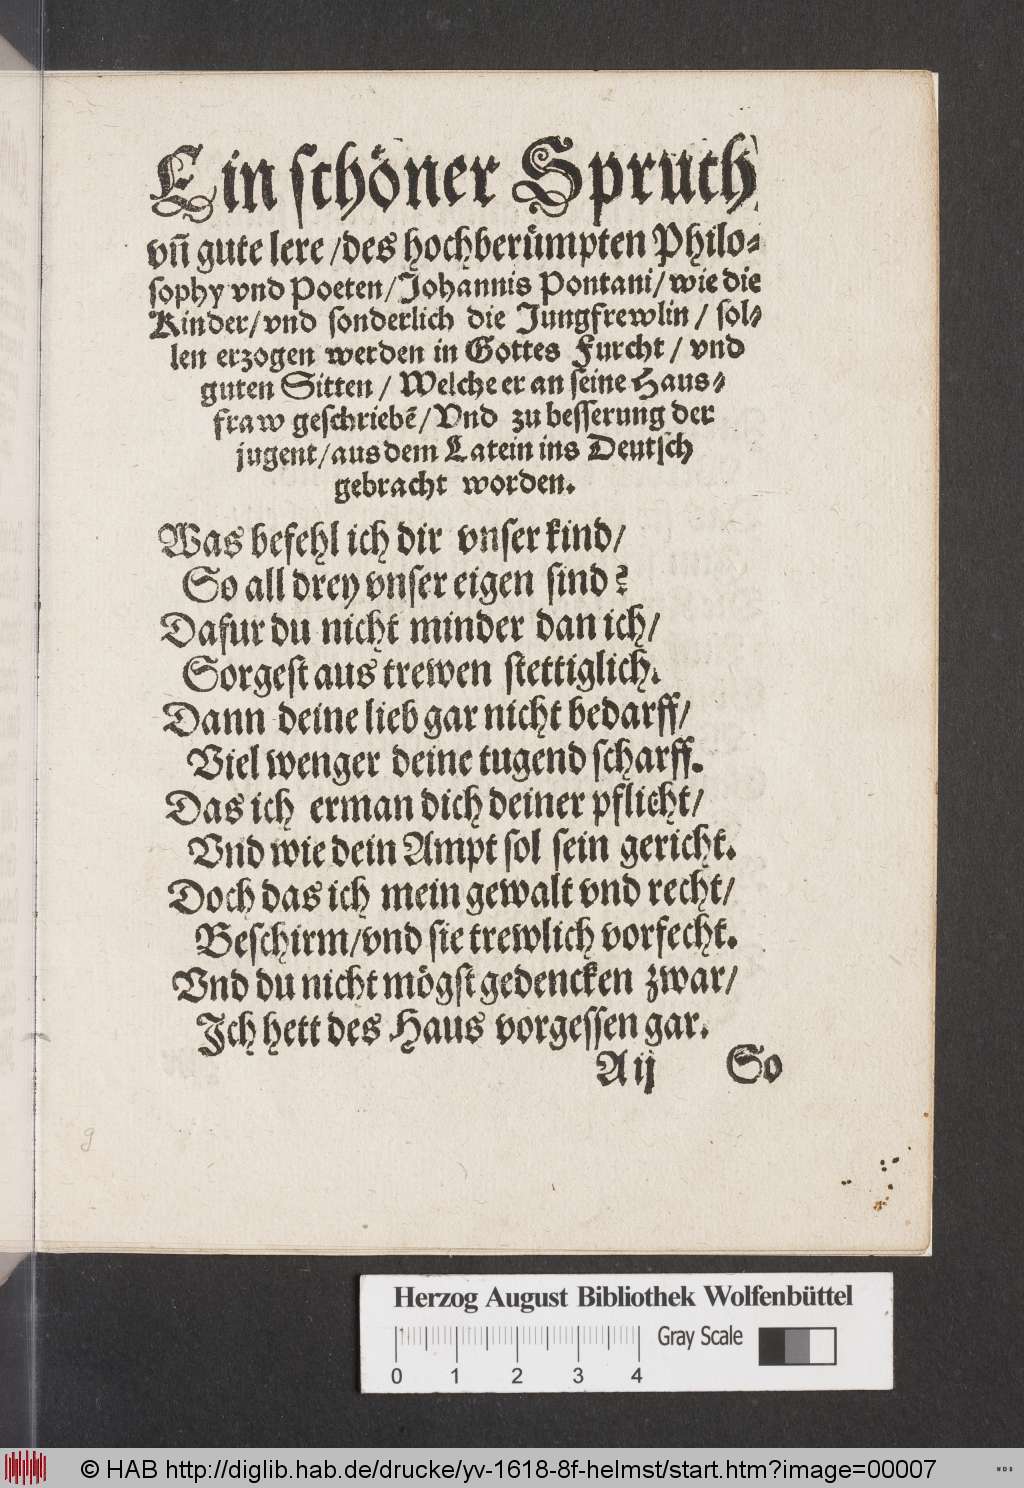 Ein schöner Spruch
vñ gute lere / des hochberümpten Philo-
sophy vnd Poeten / Johannis Pontani / wie die
Kinder / vnd sonderlich die Jungfrewlin / sol-
len erzogen werden in Gottes Furcht / vnd
guten Sitten / Welche er an seine Haus-
fraw geschriebẽ / Vnd zu besserung der
jugent / aus dem Latein ins Deutsch
gebracht worden.
Was befehl ich dir vnser kind /
So all drey vnser eigen sind?
Dafur du nicht minder dan ich /
Sorgest aus trewen stettiglich.
Dann deine lieb gar nicht bedarff /
Viel wenger deine tugend scharff.
Das ich erman dich deiner pflicht /
Vnd wie dein Ampt sol sein gericht.
Doch das ich mein gewalt vnd recht /
Beschirm / vnd sie trewlich vorfecht.
Vnd du nicht mögst gedencken zwar /
Ich hett des Haus vorgessen gar.
A ij So
g
Herzog August Bibliothek Wolfenbüttel
Gray Scale
0 1 2 3 4
© HAB http://diglib.hab.de/drucke/yv-1618-8f-helmst/start.htm?image=00007